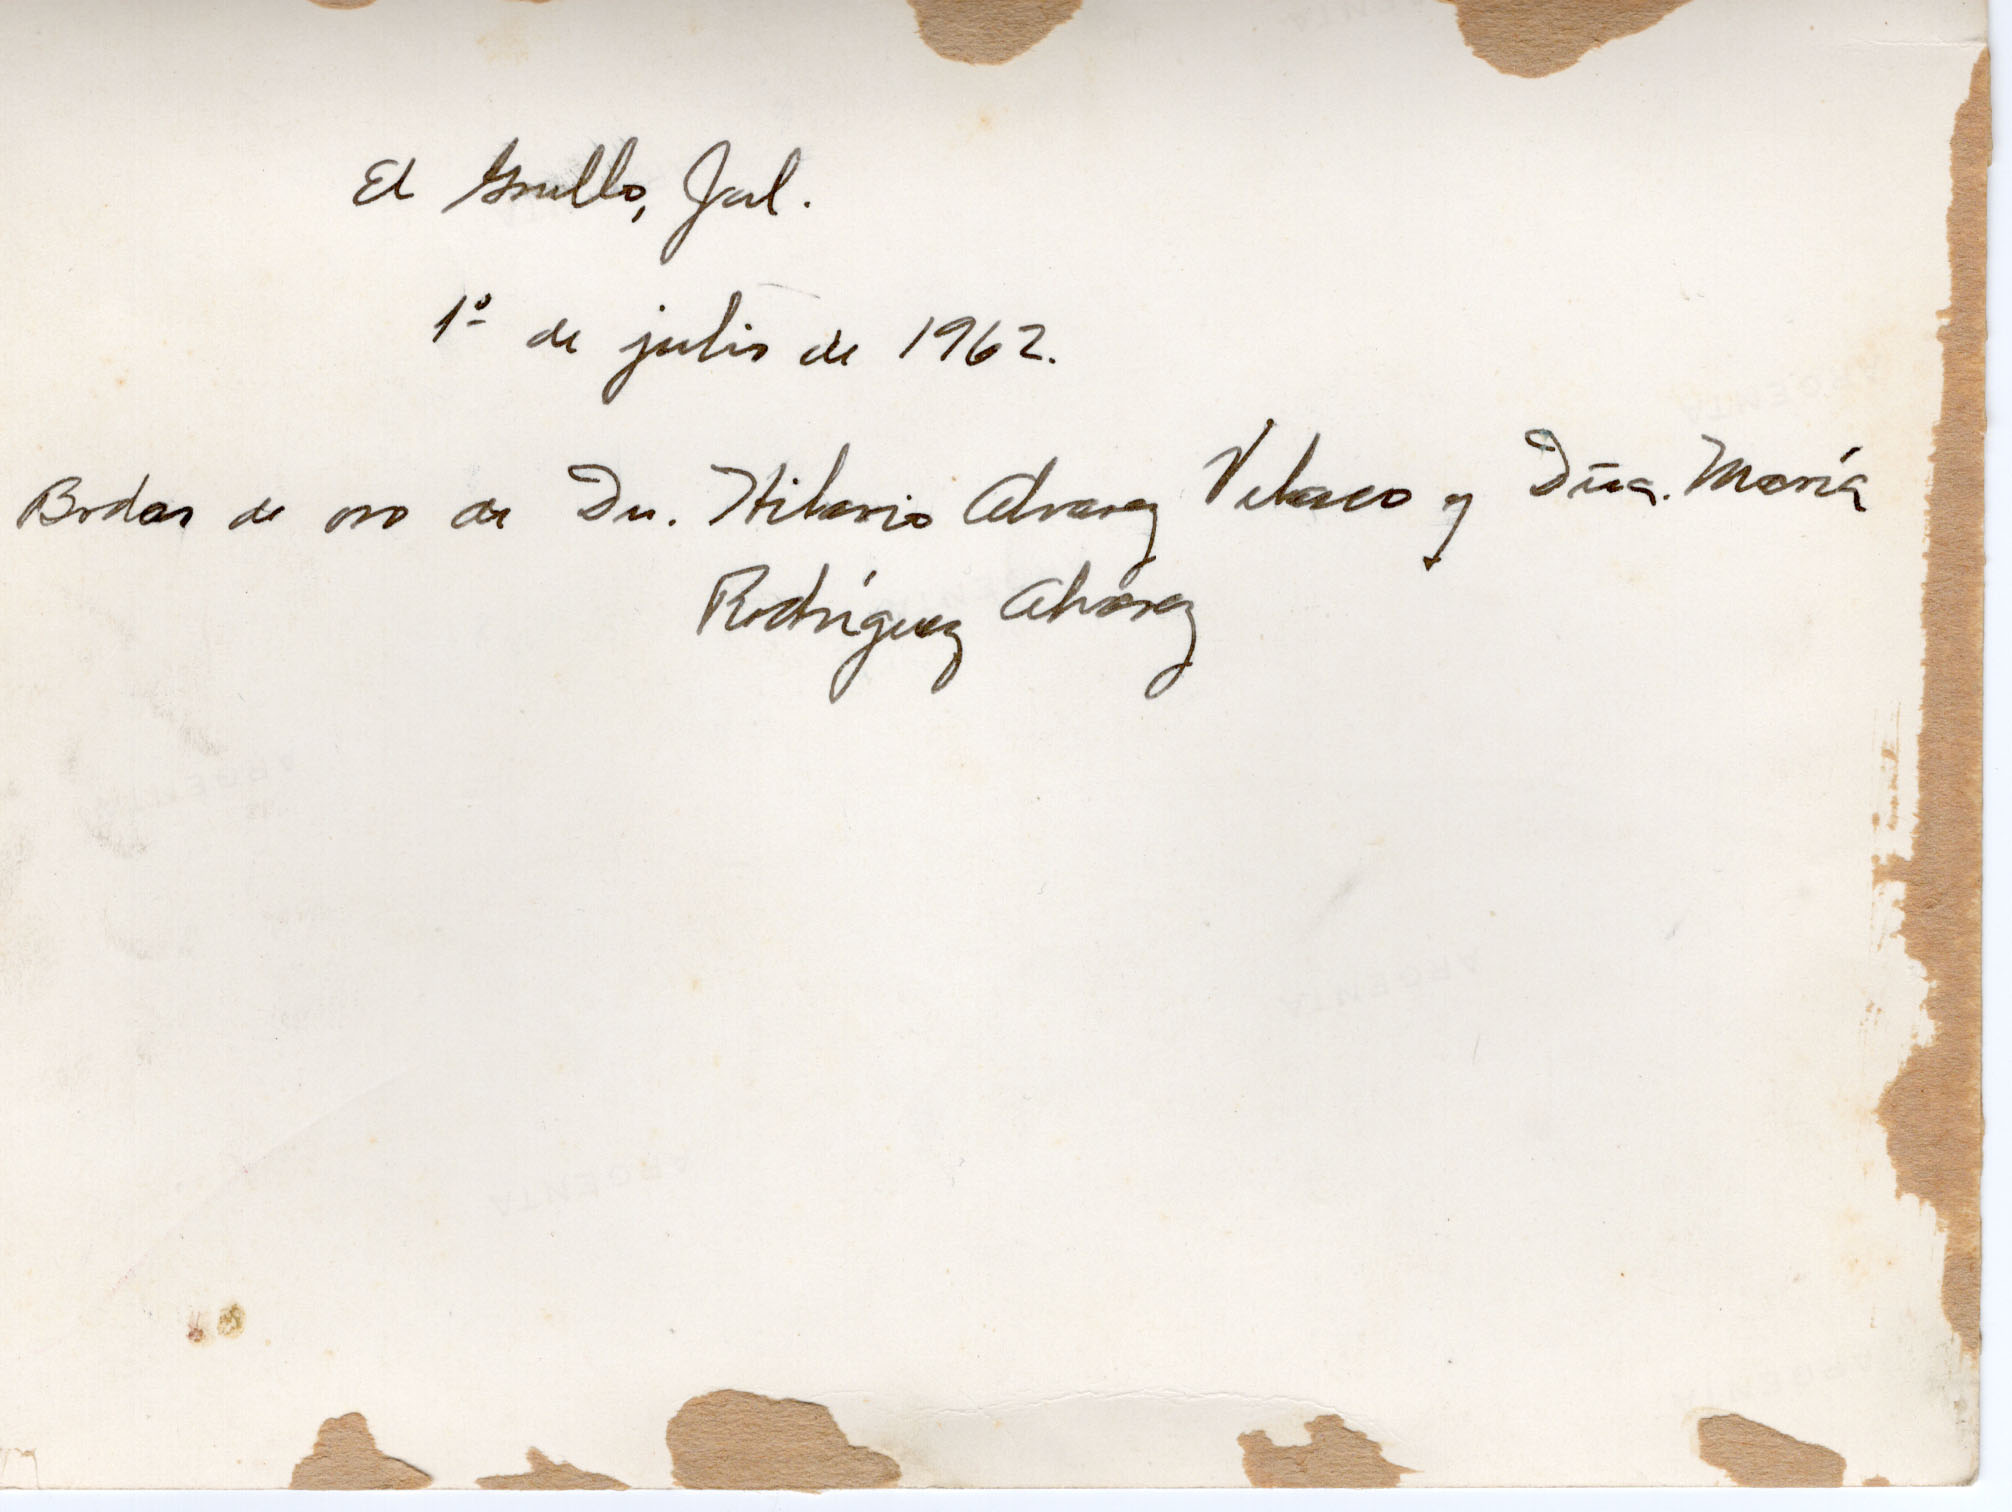 El Grullo, Jal.
1º de julio de 1962.
Bodas de oro de Dn. Hilario Alvarez Velasco y Dña. María
Rodríguez Alvarez
ARGENTA
ARGENTA
ARGENTA
ARGENTA